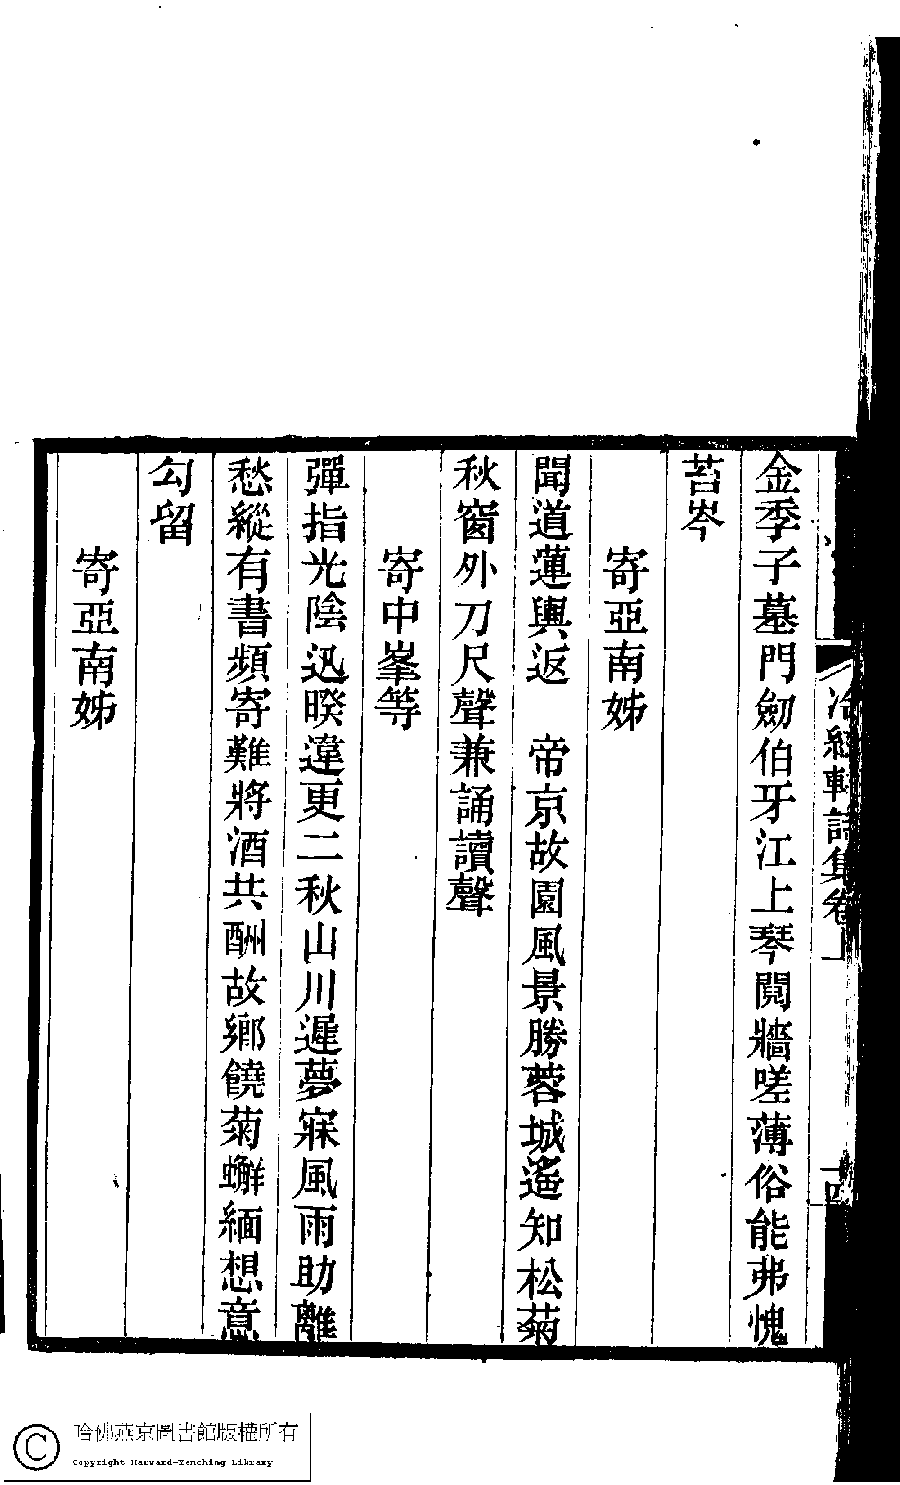 金季子墓門劒伯牙江上琴閱牆嗟薄俗能弗愧
苔岑
寄亞南姊
聞道蓮輿返　帝京故園風景勝蓉城遙知松菊
秋窗外刀尺聲兼誦讀聲
寄中峯等
彈指光陰迅暌違更二秋山川遲夢寐風雨助離
愁縱有書頻寄難將酒共酬故鄉饒菊蠏緬想意
勾留
寄亞南姊
軒詩集卷上
十四
哈佛燕京圖書館版權所有
Copyright Harvard-Yenching Library